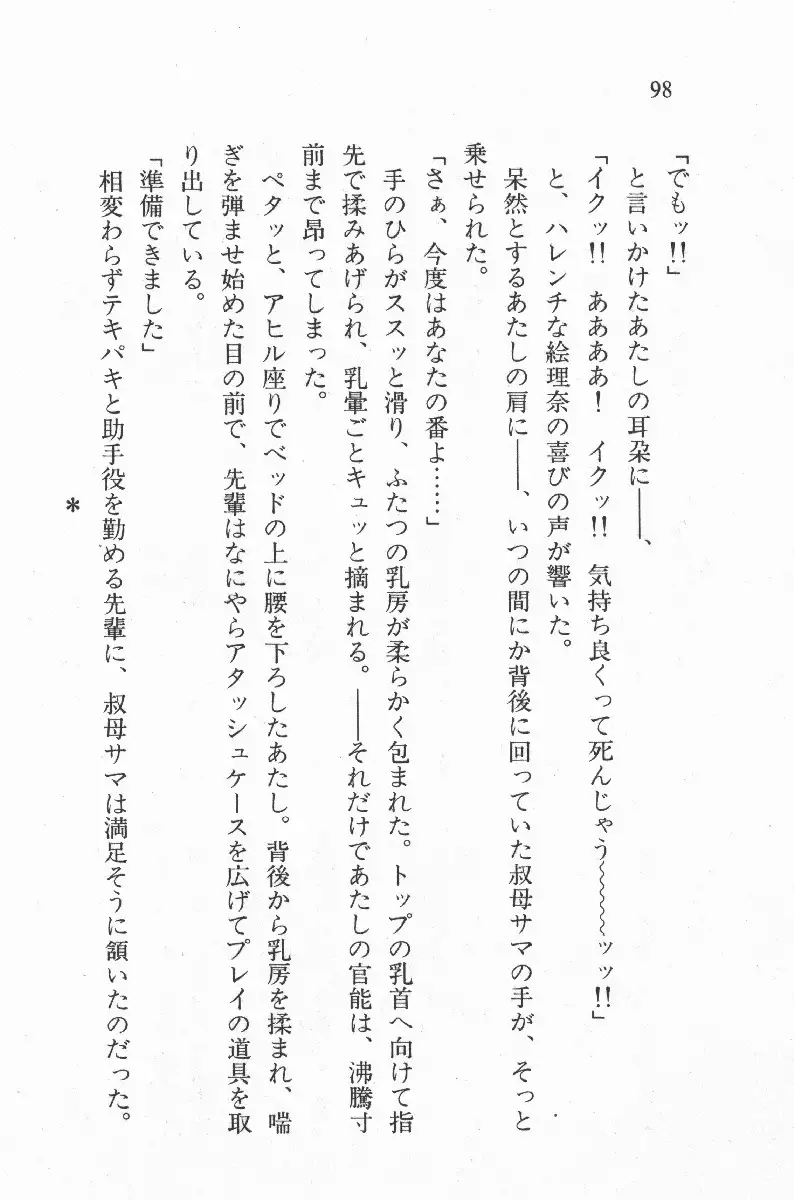 98
「でもッ!!」
と言いかけたあたしの耳朶に――、
「イクッ!! ああああ! イクッ!! 気持ち良くって死んじゃう～～～～ッッ!!」
と、ハレンチな絵理奈の喜びの声が響いた。
呆然とするあたしの肩に――、いつの間にか背後に回っていた叔母サマの手が、そっと
乗せられた。
「さぁ、今度はあなたの番よ……」
手のひらがススッと滑り、ふたつの乳房が柔らかく包まれた。トップの乳首へ向けて指
先で揉みあげられ、乳暈ごとキュッと摘まれる。――それだけであたしの官能は、沸騰寸
前まで昂ってしまった。
ペタッと、アヒル座りでベッドの上に腰を下ろしたあたし。背後から乳房を揉まれ、喘
ぎを弾ませ始めた目の前で、先輩はなにやらアタッシュケースを広げてプレイの道具を取
り出している。
「準備できました」
相変わらずテキパキと助手役を勤める先輩に、叔母サマは満足そうに頷いたのだった。
＊